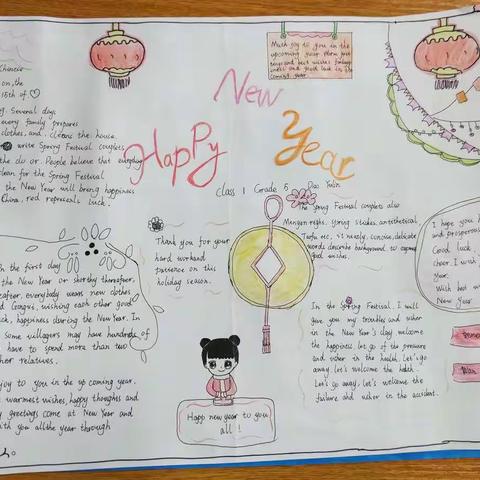 Chinese
on, the
15th of
Several days
every family prepares
clothes, and, cleans the house.
write Spring Festival couplets
the do or. People believe that everyday
clean for the Spring Festival
the New Year will bring happiness
China, red represents luck.
Much joy to you in the
upcoming year.
wishes
and good luck in the
coming year
New
Happy
Year
Class 1 Grade 5 Dao Yuan
The Spring Festival couplets also
Menqun nights, Spring stickers, antithetical
Tuifu etc. simple, concise, delicate
words describe background to express
good wishes.
Thank you for your
hard workand
patience on this
holiday season.
I hope you h
and prosperous
Good luck,
Cheer. I wish
year.
With best w
New Year
n the first day
the New Year or shorthy thereafter,
eafter, everybody wears new clothes
d Gongxi, wishing each other good
ck, happiness during the New Year. In
some villagers may have hundreds of
have to spend more than two
her relatives.
In the Spring Festival, I will
give you my troubles and usher
in the New Year's day welcome
the happiness let go of the pressure
and usher in the health. Let's go
away, let's welcome the health.
Let's go away, let's welcome the
failure and usher in the accident.
joy to you in the up coming year.
warmest wishes, happy thoughts and
y greetings come at New Year and
ith you all the year through
Happ new year to you
all !